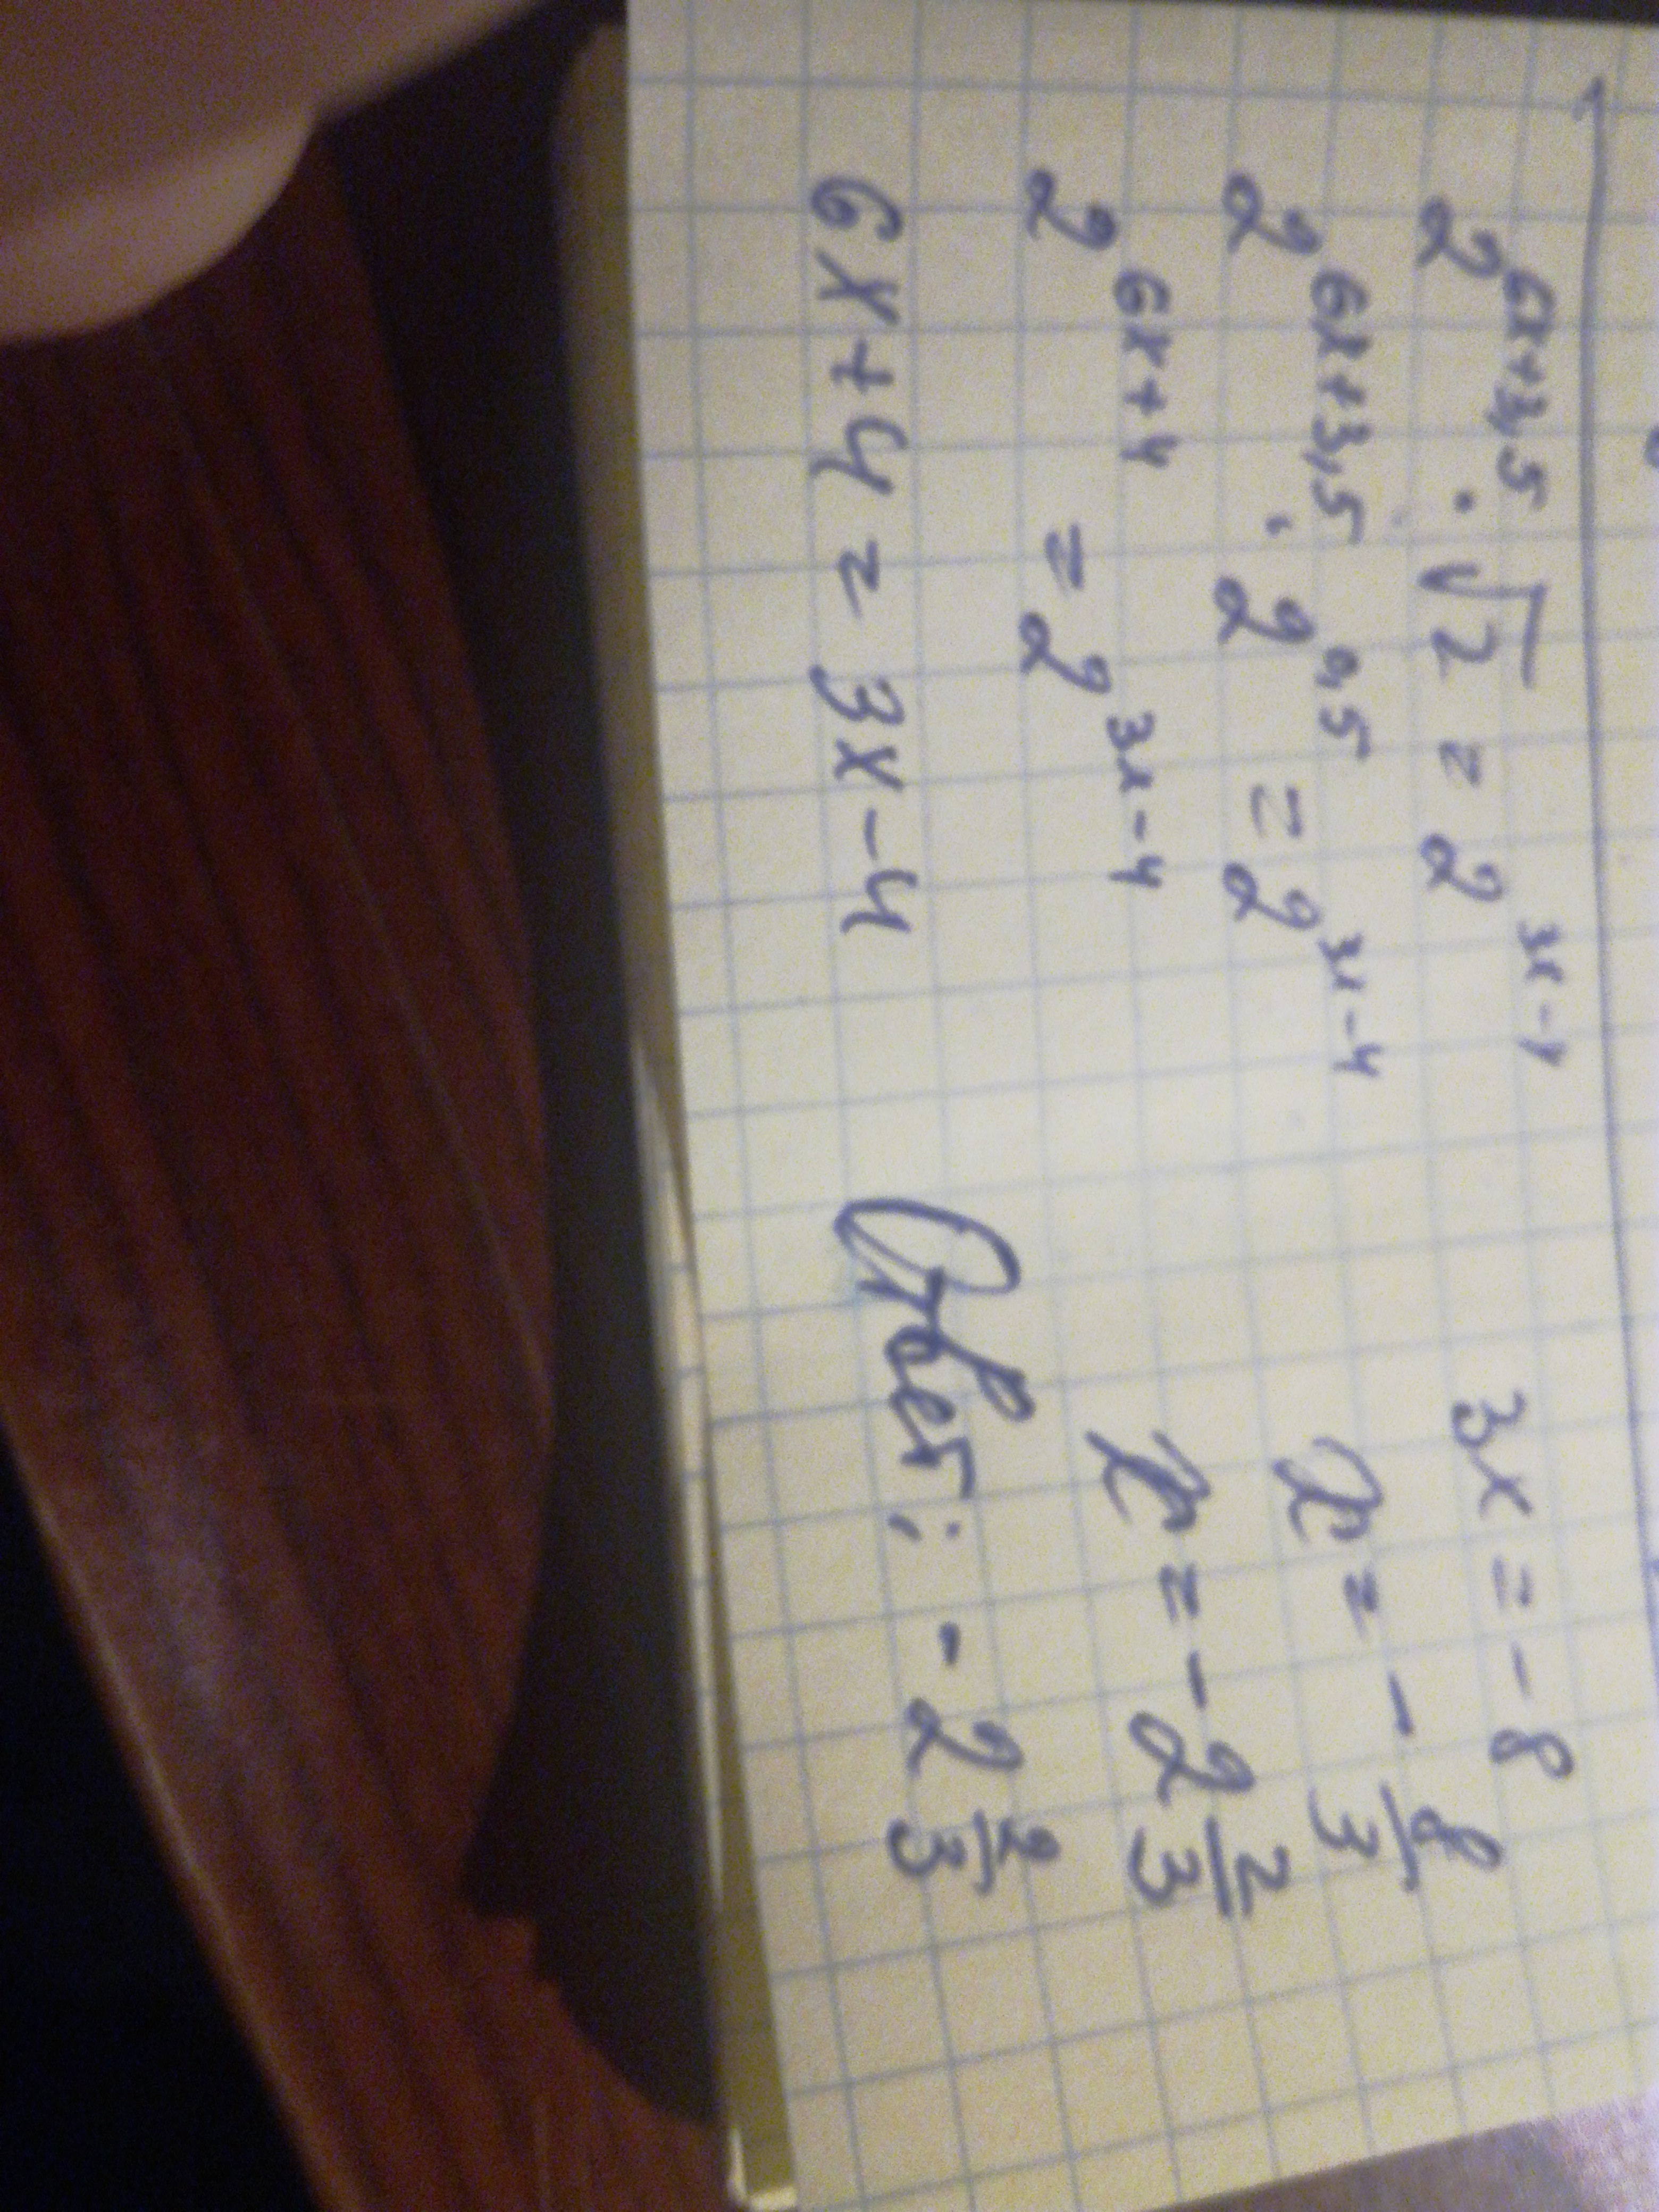 2^{6x+3,5} · √2 = 2^{3x-4}
2^{6x+3,5} · 2^{0,5} = 2^{3x-4}
2^{6x+4} = 2^{3x-4}
6x+4 = 3x-4
3x = -8
x = -8/3
x = -2 2/3
Ответ: -2 2/3